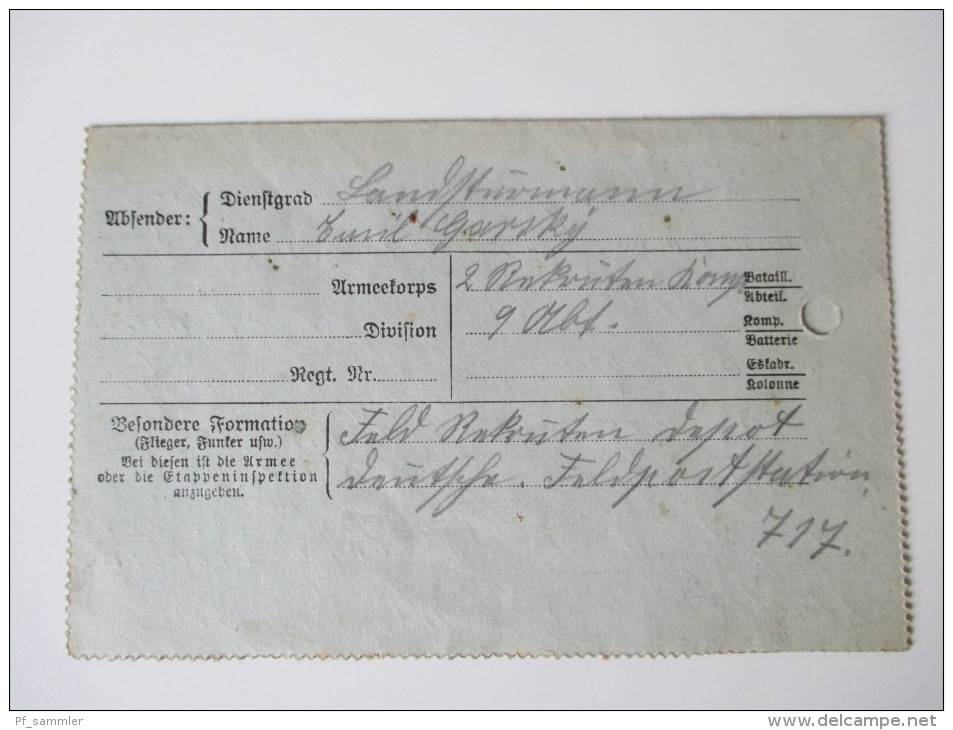 Absender: Dienstgrad Landsturmann
Name Emil Garsky
Armeekorps
Division
Regt. Nr.
2 Rekruten Komp
9 Abt.
Bataill.
Abteil.
Komp.
Batterie
Eskadr.
Kolonne
Besondere Formation
(Flieger, Funker usw.)
Bei diesen ist die Armee
oder die Etappeninspektion
anzugeben.
Feld Rekruten Depot
Deutsche. Feldpoststation
717.
Pf_sammler
www.delcampe.net